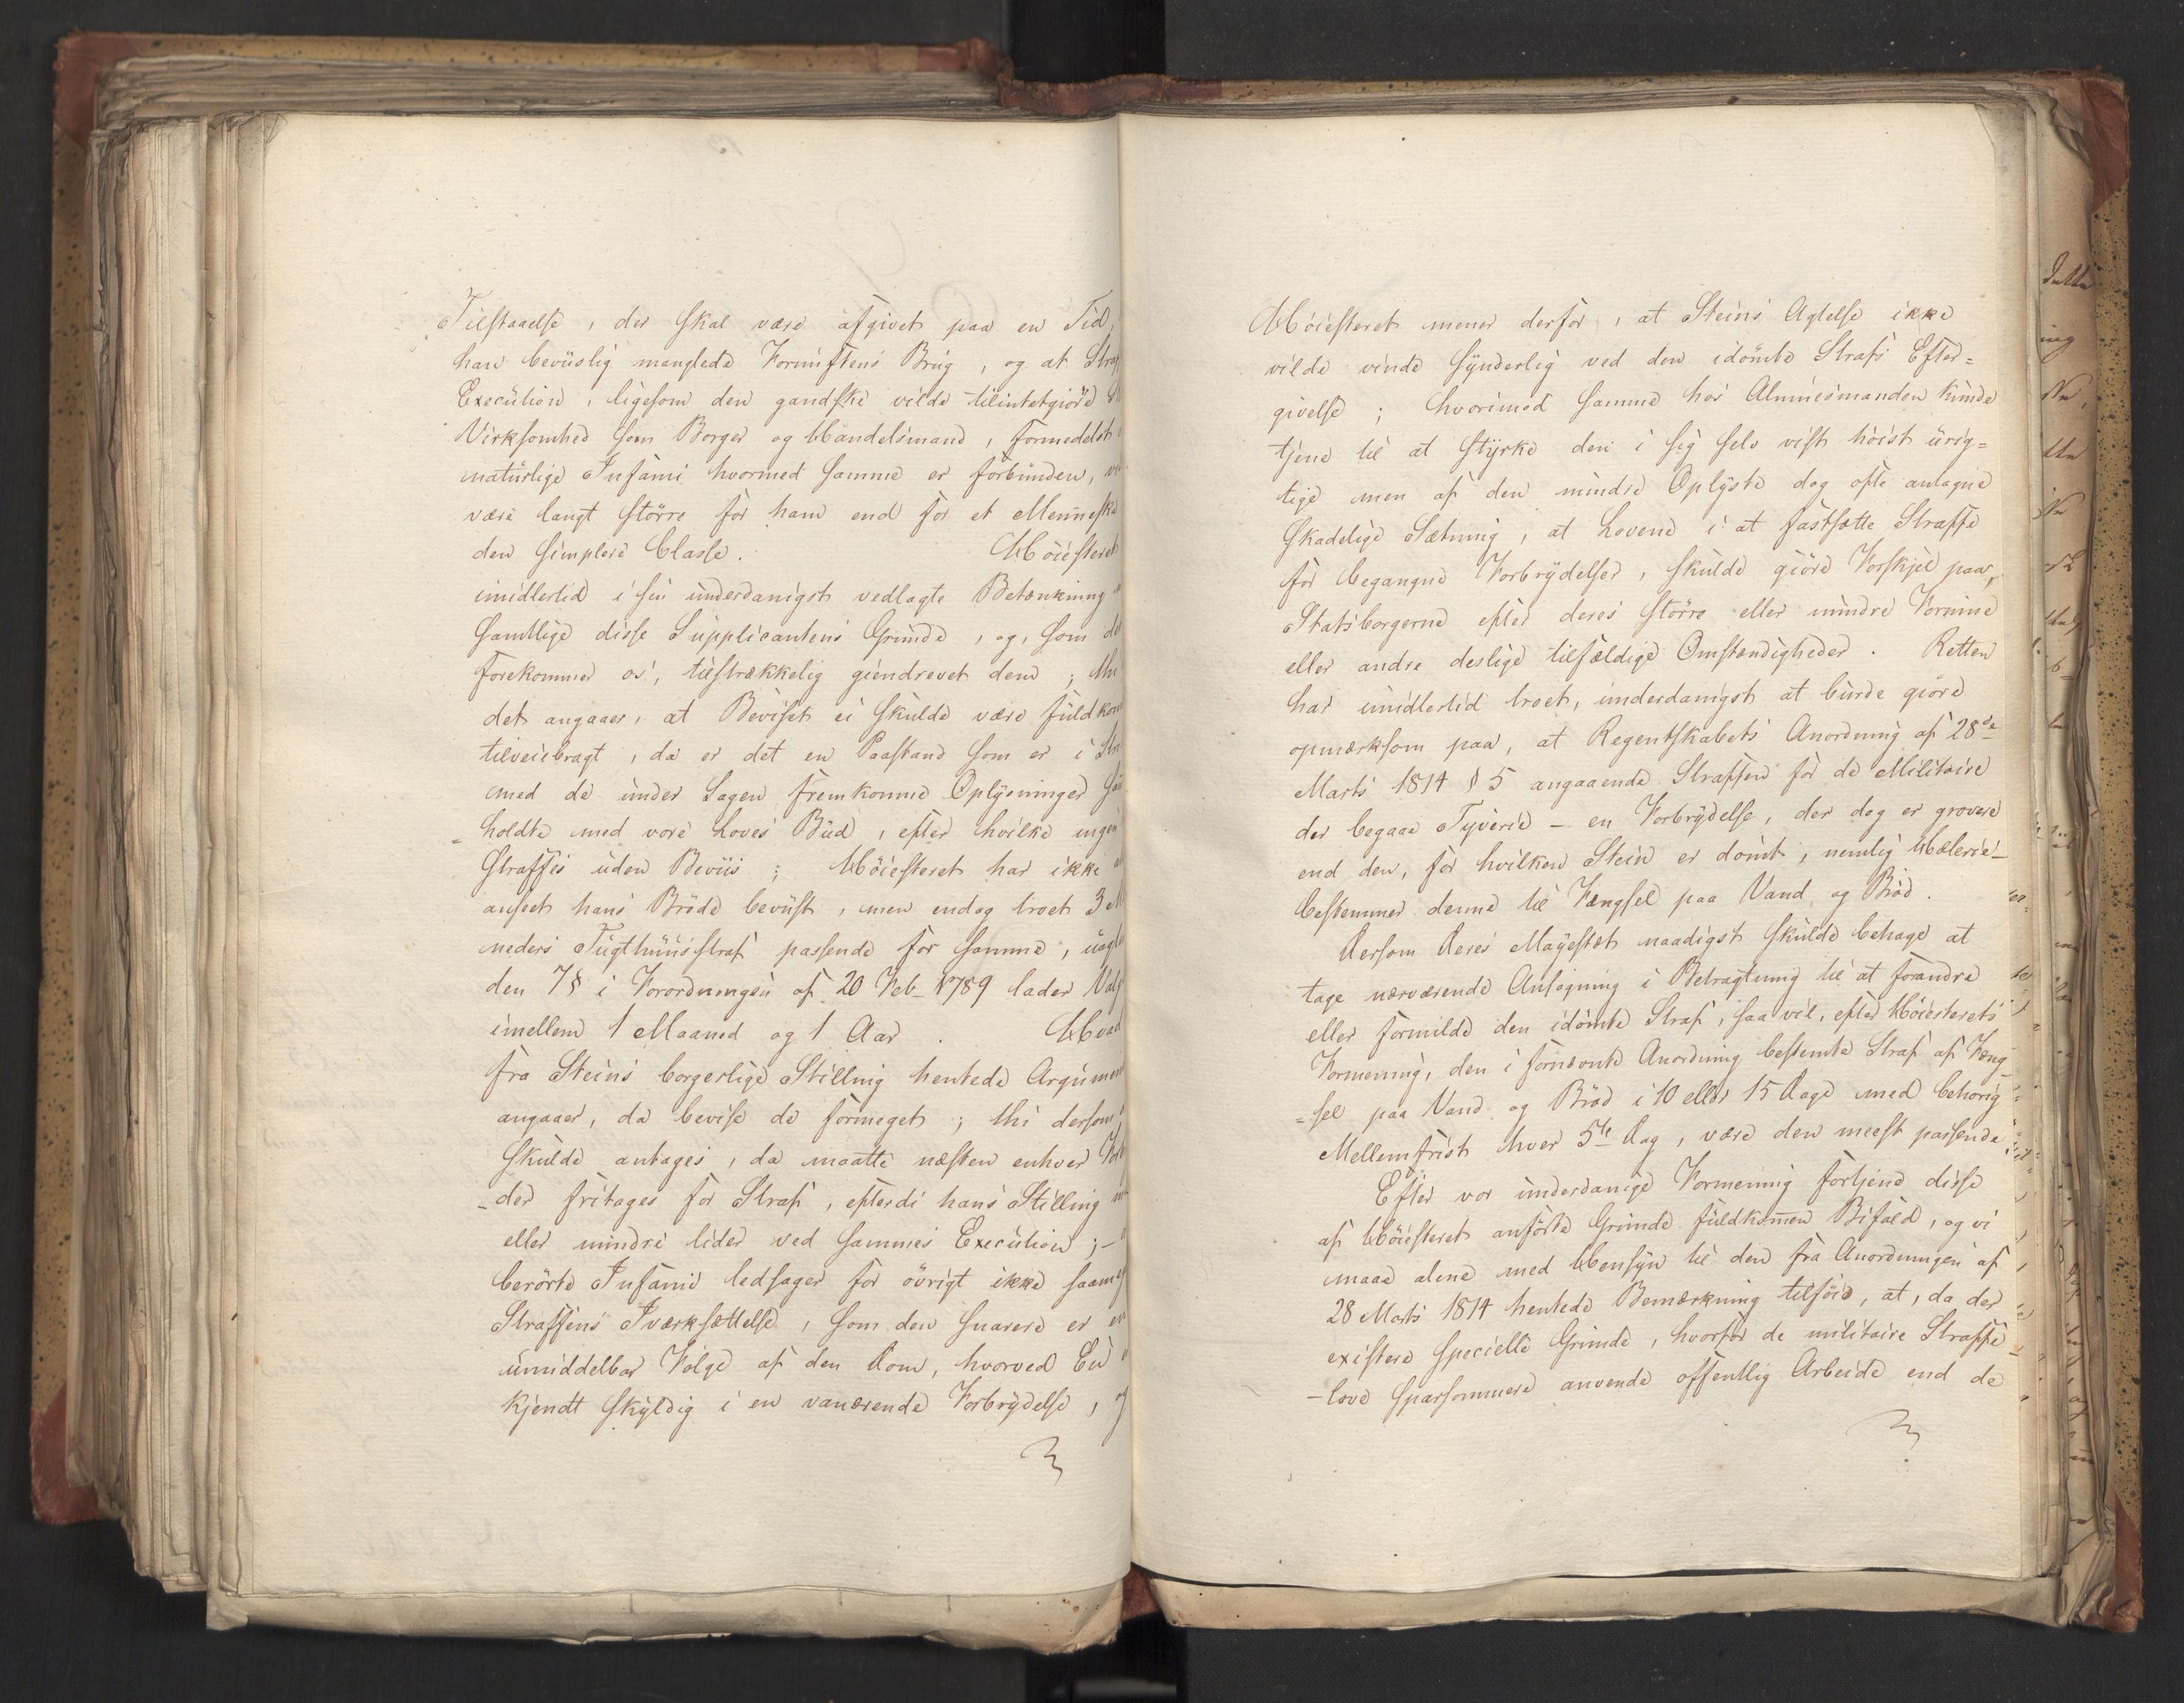 Tilstaaelse, der skal være afgivet paa en Tid,
han beviislig manglede Fornuftens Brug, og at Straf
Execution, ligesom den gandske vilde tilintetgiøre
Virksomhed som Borger og Handelsmand, formedelst
naturlige Infami hvormed samme er forbunden,
være langt større for ham end for et Menneske
den simplere Classe. Høiesteret
imidlertid i sin underdanigst vedlagte Betænkning
samtlige disse Supplicantens Grunde, og, som det
forekommer os, tilstrækkelig giendrevet dem; thi
det angaaer, at Beviset ei skulde være fuldkom
tilveiebragt, da er det en Paastand som er i Stri
med de under Sagen fremkomne Oplysninger
holdte med vore Loves Bud, efter hvilke ingen
straffes uden Beviis; Høiesteret har ikke
anseet hans Brøde beviist, men endog troet 3 M
neders Tugthuusstraf passende for samme, uagt
den 7 § i Forordningen af 20 Feb 1789 lader Valg
imellem 1 Maaned og 1 Aar. Hvad
fra Steins borgerlige Stilling hentede Argument
angaaer, da bevise de formeget; thi dersom
skulde antages, da maatte næsten enhver For
der fritages for Straf, efterdi hans Stilling
eller mindre lider ved sammes Execution; -
berørte Infamie ledsager for øvrigt ikke saa
Straffens Iværksættelse, som den snarere er en
umiddelbar Følge af den Dom, hvorved En
kjendt skyldig i en vanærende Forbrydelse, og
Høiesteret mener derfor, at Steins Agtelse ikke
vilde vinde synderlig ved den idømte Strafs Efter=
givelse; hvorimod samme hos Almuesmanden kunde
tjene til at styrke den i sig selv vist høist urig=
tige men af den mindre Oplyste dog ofte antagne
skadelige Sætning, at Lovene i at fastsætte Straffe
for begangne Forbrydelser, skulde giøre Forskjel paa
Statsborgerne efter deres større eller mindre Formue
eller andre deslige tilfældige Omstændigheder. Retten
har imidlertid troet, underdanigst at burde giøre
opmærksom paa, at Regentskabets Anordning af 28de
Marts 1814 § 5 angaaende Straffen for de Militaire
der begaae Tyverie - en Forbrydelse, der dog er grovere
end den, for hvilken Stein er dømt, nemlig Hælerie -
bestemmer denne til Fængsel paa Vand og Brød.
Dersom Deres Majestæt naadigst skulde behage at
tage nærværende Ansøgning i Betragtning til at forandre
eller formilde den idømte Straf, saa vil, efter Høiesterets
Formening, den i fornævnte Anordning bestemte Straf af Fæng
=sel paa Vand og Brød i 10 eller 15 Dage med behørig
Mellemfrist hver 5te Dag, være den meest passende.
Efter vor underdanige Formening fortjene disse
af Høiesteret anførte Grunde fuldkommen Bifald, og vi
maae alene med Hensyn til den fra Anordningen af
28 Marts 1814 hentede Bemærkning tilføie, at, da der
existere specielle Grunde, hvorfor de militaire Straffe
-love sparsommere anvende offentlig Arbeide end de